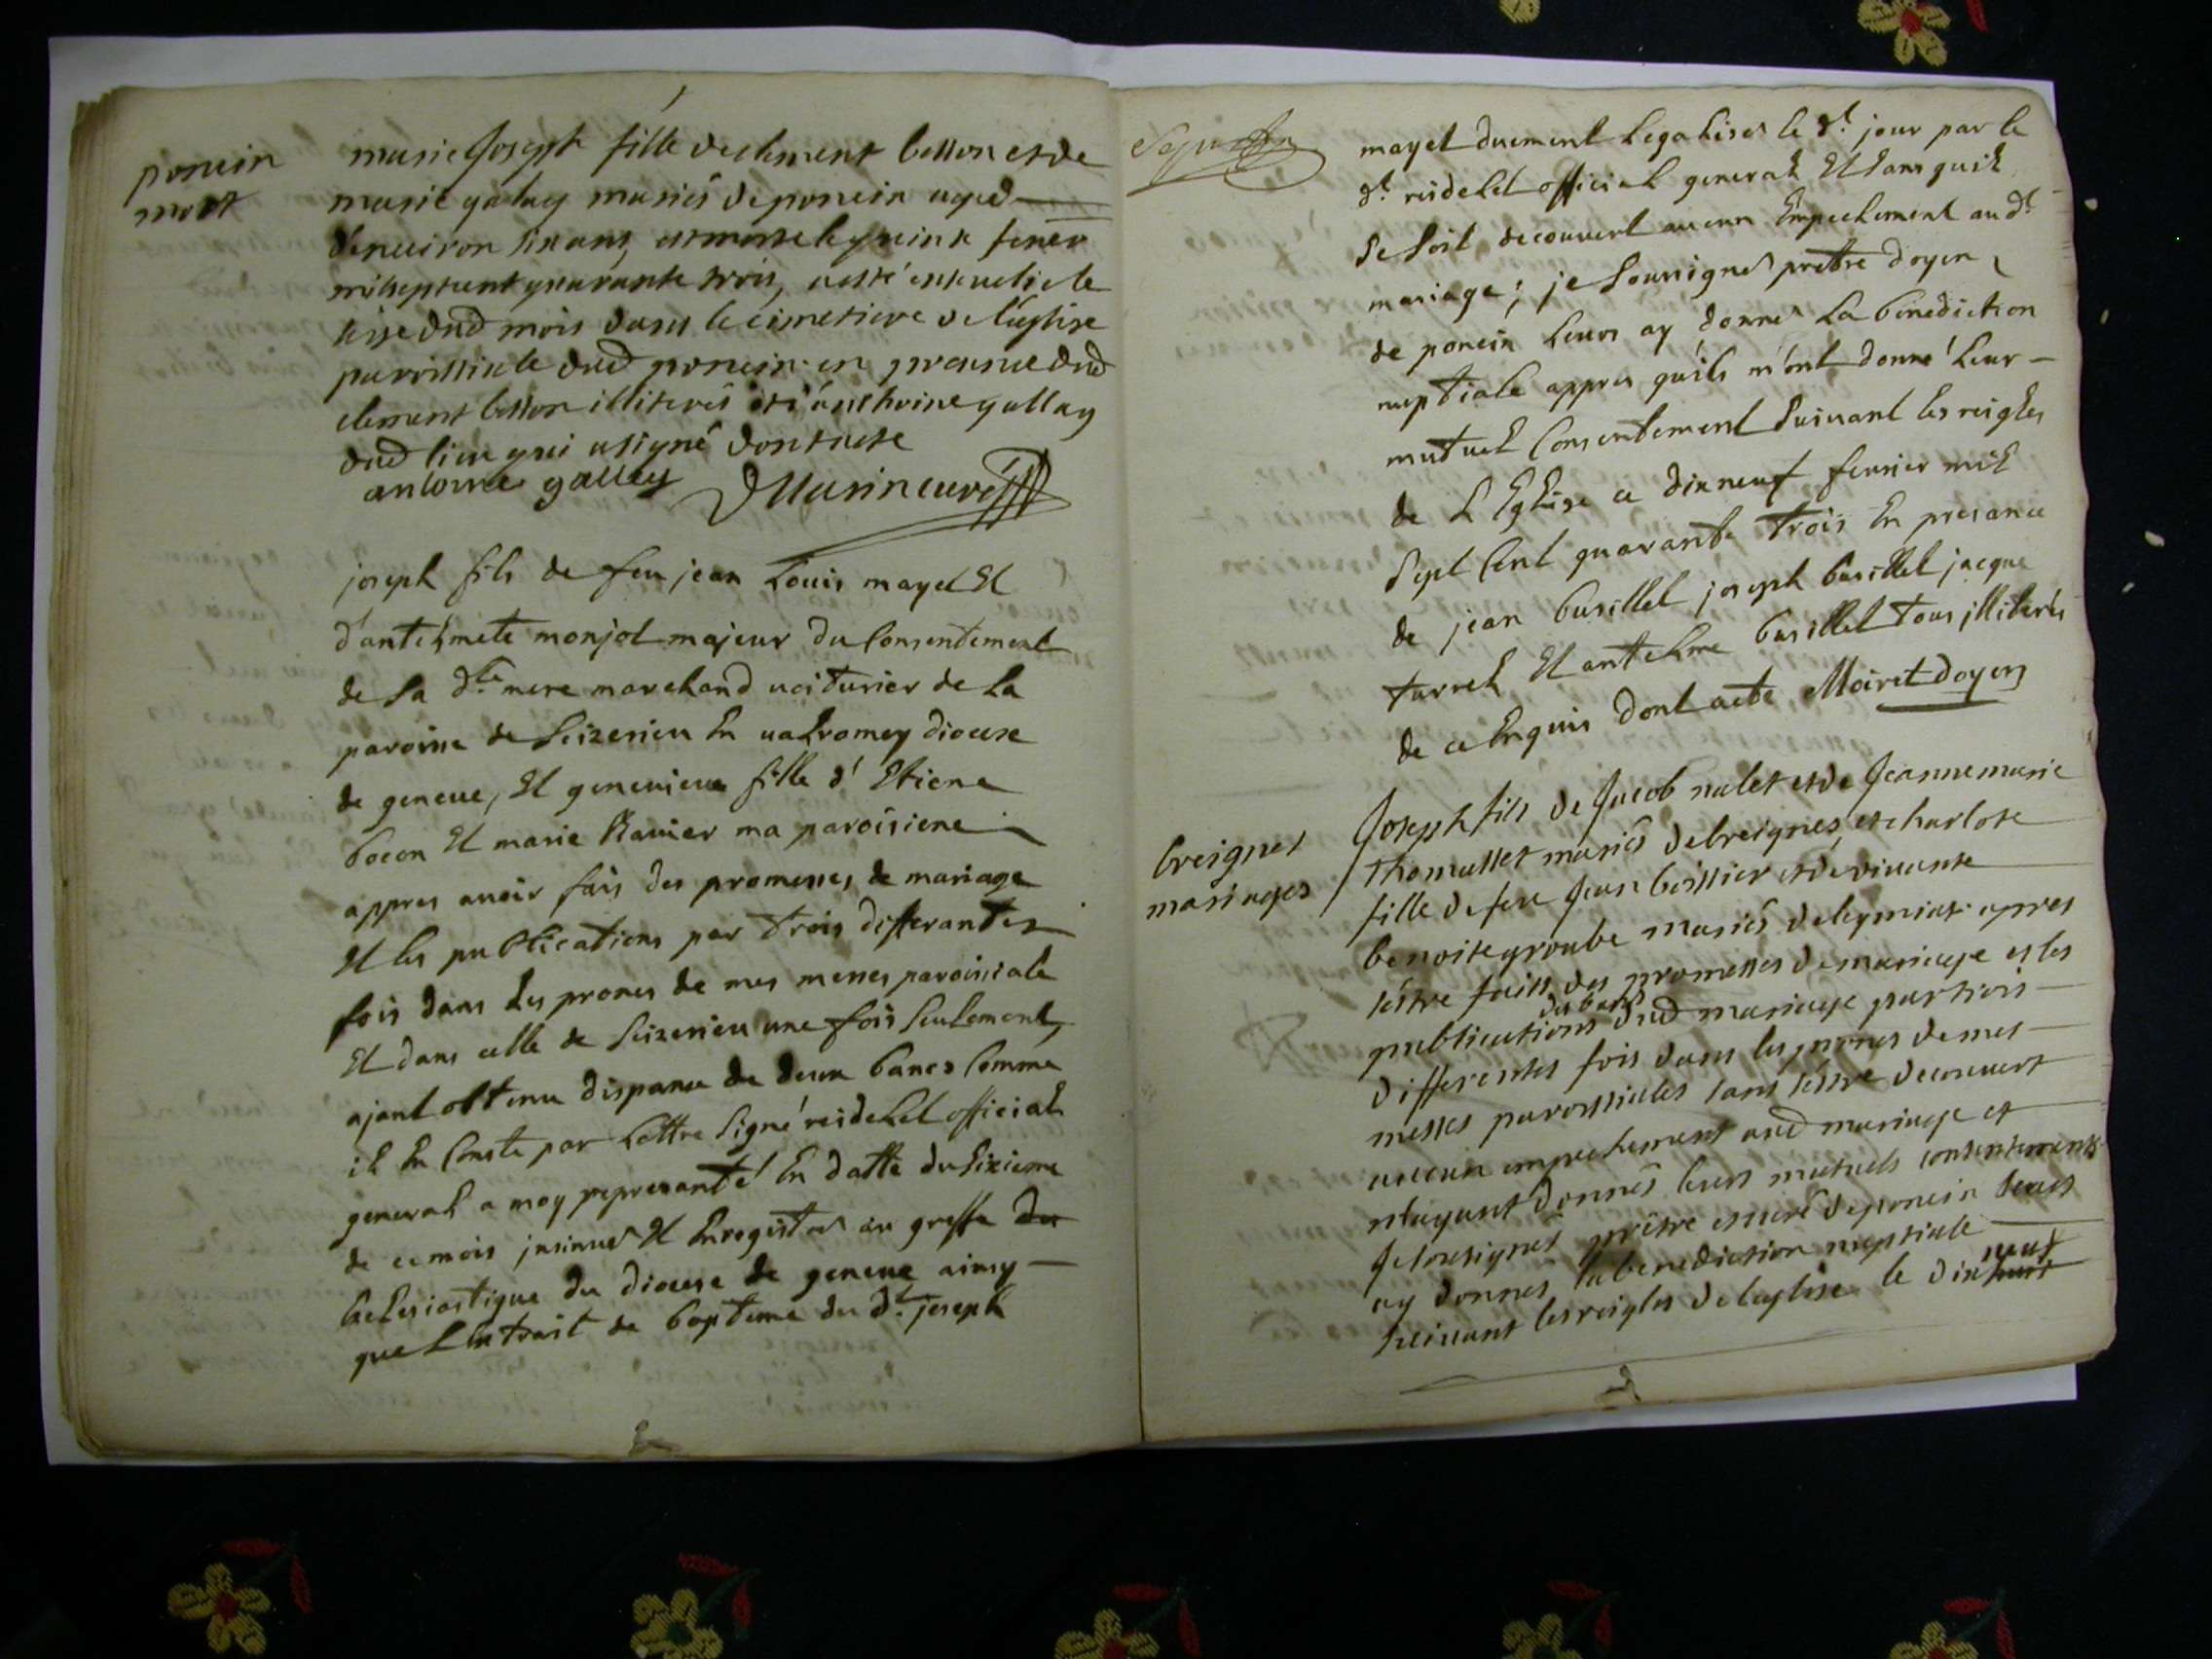 poncin
mort
marie Joseph fille de clement besson et de
marie galay mariés de poncin agee
denuiron six ans, est morte le quinze feuer
mil sept cent quarante trois, a esté enseuelie le
seize dud mois dans le cimetiere de l'église
parroissiale dud poncin en presence dud
clement besson illiterés et d'anthoine gallay
dud lieu qui a signé dont acte
antoine galley
joseph fils de feu jean Louis mayet Et
d'antelmete monjot majeur du Consentement
de sa dte mere marchand uoiturier de La
paroisse de Seizerieu En ualromey diocese
de geneue, Et geneuieue fille d'Etiene
bocon Et marie Rauier ma paroisiene
appres auoir fais des promesses de mariage
Et les publications par trois differantes
fois dans Les prones de mes messes paroissiale
Et dans celle de Seizerieu une fois seulement,
ajant obtenu dispance de deux bancs Comme
il En Conste par Lettre Signé reidelet official
general a moy represanté En datte du sixieme
de ce mois jnsinues Et Enregistres au greffe du
Eclesiastique du diocese de geneue ainsy
que LExtrait de bapteme du dt joseph
mayet duement Legalises le dt jour par le
dt reidelet official general Et sans quil
se soit decouuert aucun Empechement au dt
mariage; je soussignes prettre doyen
de poncin Leurs ay donnes La benediction
nuptiale appres quils m'ont donné Leur
mutuel Consentement suiuant les reigles
de LEglise ce dixneuf feurier mil
sept Cent quarante trois En presance
de jean busillet joseph busillet jacque
turrel Et antelme busillet tous jlliterés
de ce Enquis dont acte Moiret doyen
breignes
mariages
Joseph fils de Jacob nalet et de Jeanne marie
Thomasset mariés de breignes, et charlote
fille de feu Jean bessier et de viuante
benoite groube mariés de leymiat apres
s'éstre faits des promesses de mariage et les
publications des bans dud mariage par trois
differentes fois dans les prones de mes
messes paroissiales sans s'éstre decouuert
aucun empechement aud mariage et
m'ayant donnés leurs mutuels consentements
Je soussignes prêtre et curé de poncin leurs
ay donnes la benediction nuptiale
suiuant les reigles de l'eglise le dix huit neuf